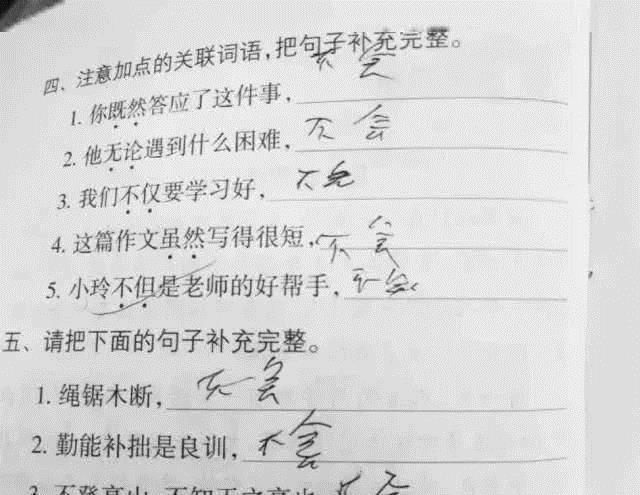 四、注意加点的关联词语,把句子补充完整。
1. 你既然答应了这件事, 不会
2. 他无论遇到什么困难, 不会
3. 我们不仅要学习好, 不会
4. 这篇作文虽然写得很短, 不会
5. 小玲不但是老师的好帮手, 不会
五、请把下面的句子补充完整。
1. 绳锯木断, 不会
2. 勤能补拙是良训, 不会
3. 不登高山,不知天之高也 不会